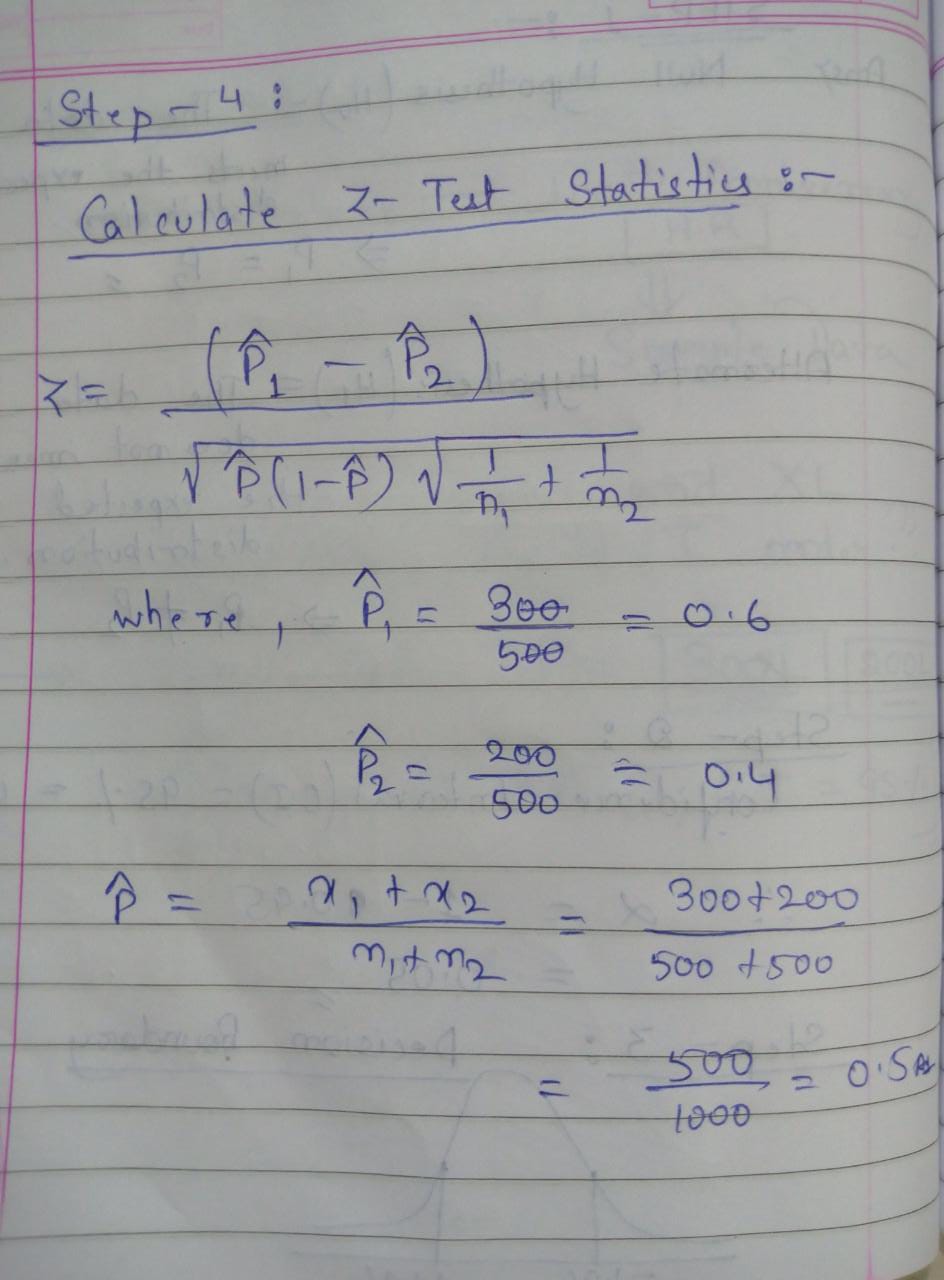 Step - 4 :
Calculate Z- Test Statistics :-
z = (P̂₁ - P̂₂) / √P̂(1-P̂) √1/n₁ + 1/n₂
where, P̂₁ = 300/500 = 0.6
P̂₂ = 200/500 = 0.4
P̂ = x₁ + x₂ / n₁ + n₂ = 300+200 / 500+500
= 500/1000 = 0.5